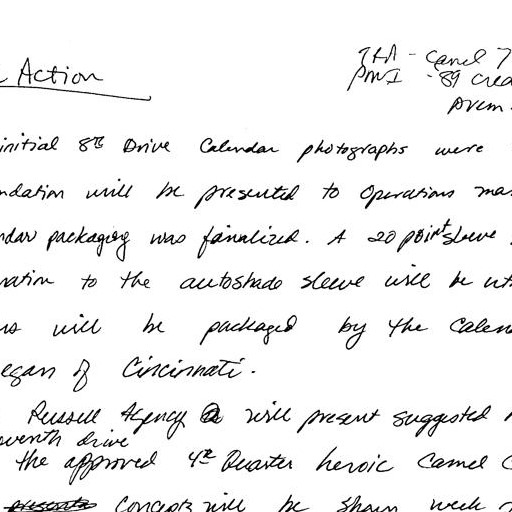 Action
TRA - Camel 7
PMI - '89 Crea
Prem
initial 8th Drive Calendar photographs were
ndation will be presented to Operations ma
ndar packaging was finalized. A 20 point sleeve
nation to the autoshade sleeve will be ut
ns will be packaged by the Calen
egan of Cincinnati.
Russell Agency will present suggested
eventh drive
the approved 4th Quarter heroic Camel C
presents concepts will be shown week